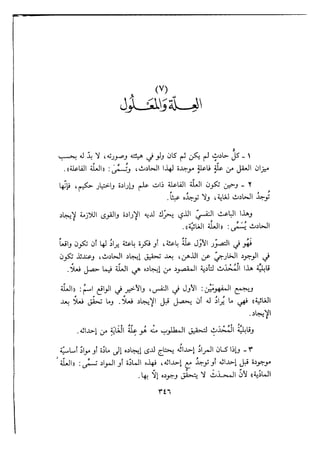 (٧)
العِلَّة وَالمَعْلُول
١ - كلُّ حادثٍ لم يكن ثم كان ولو في هيئته وصورته، لا بدّ له بحسب
ميزان العقل من علّةٍ فاعلةٍ موجدة لهذا الحادث، ويُسمَّى: «العلّة الفاعلة».
٢ - وحين تكون العلّة الفاعلة ذات علم وإرادة واختيار حكيم، فإنّها
تُوجدُ الحادث لغاية، ولا توجدُه عبثاً.
وهذا الباعث النفسيّ الذي يحرّك لديه الإرادة والقوى اللازمة لإيجاد
الحادث يُسمَّى: «العلّة الغائيّة».
فهو في التصوّر الأول علّة باعثة، أو فكرة باعثة يرادُ لها أن تكون واقعاً
في الوجود الخارجيّ عن الذهن، بعد تحقيق إيجاد الحادث، وعندئذ تكون
قابليّة هذا المُحْدَث لتأدية المقصود من إيجاده هي العلّة فيما حصل فعلاً.
ويجمع المفهومَيْن: الأول في النفس، والأخير في الواقع اسمُ: «العلّة
الغائيّة» فهي ما يُرادُ له أن يحصل قبل الإيجاد فعلاً. وما تحقّق فعلاً بعد
الإيجاد.
وقابليّة المُحْدَث لتحقيق المطلوب منه هو علّة الغاية من إحداثه.
٣ - وإذا كان المرادُ إحداثُه يحتاج لدى إيجاده إلى مادّة أو موادّ أساسيّة
موجودة قبل إحداثه أو توجدُ مع إحداثه، فهذه المادّة أو المواد تسمى: «العلّة
المادّية» لأنّ المحدَث لا يتحقّق وجوده إلّا بها.
٣٤٦